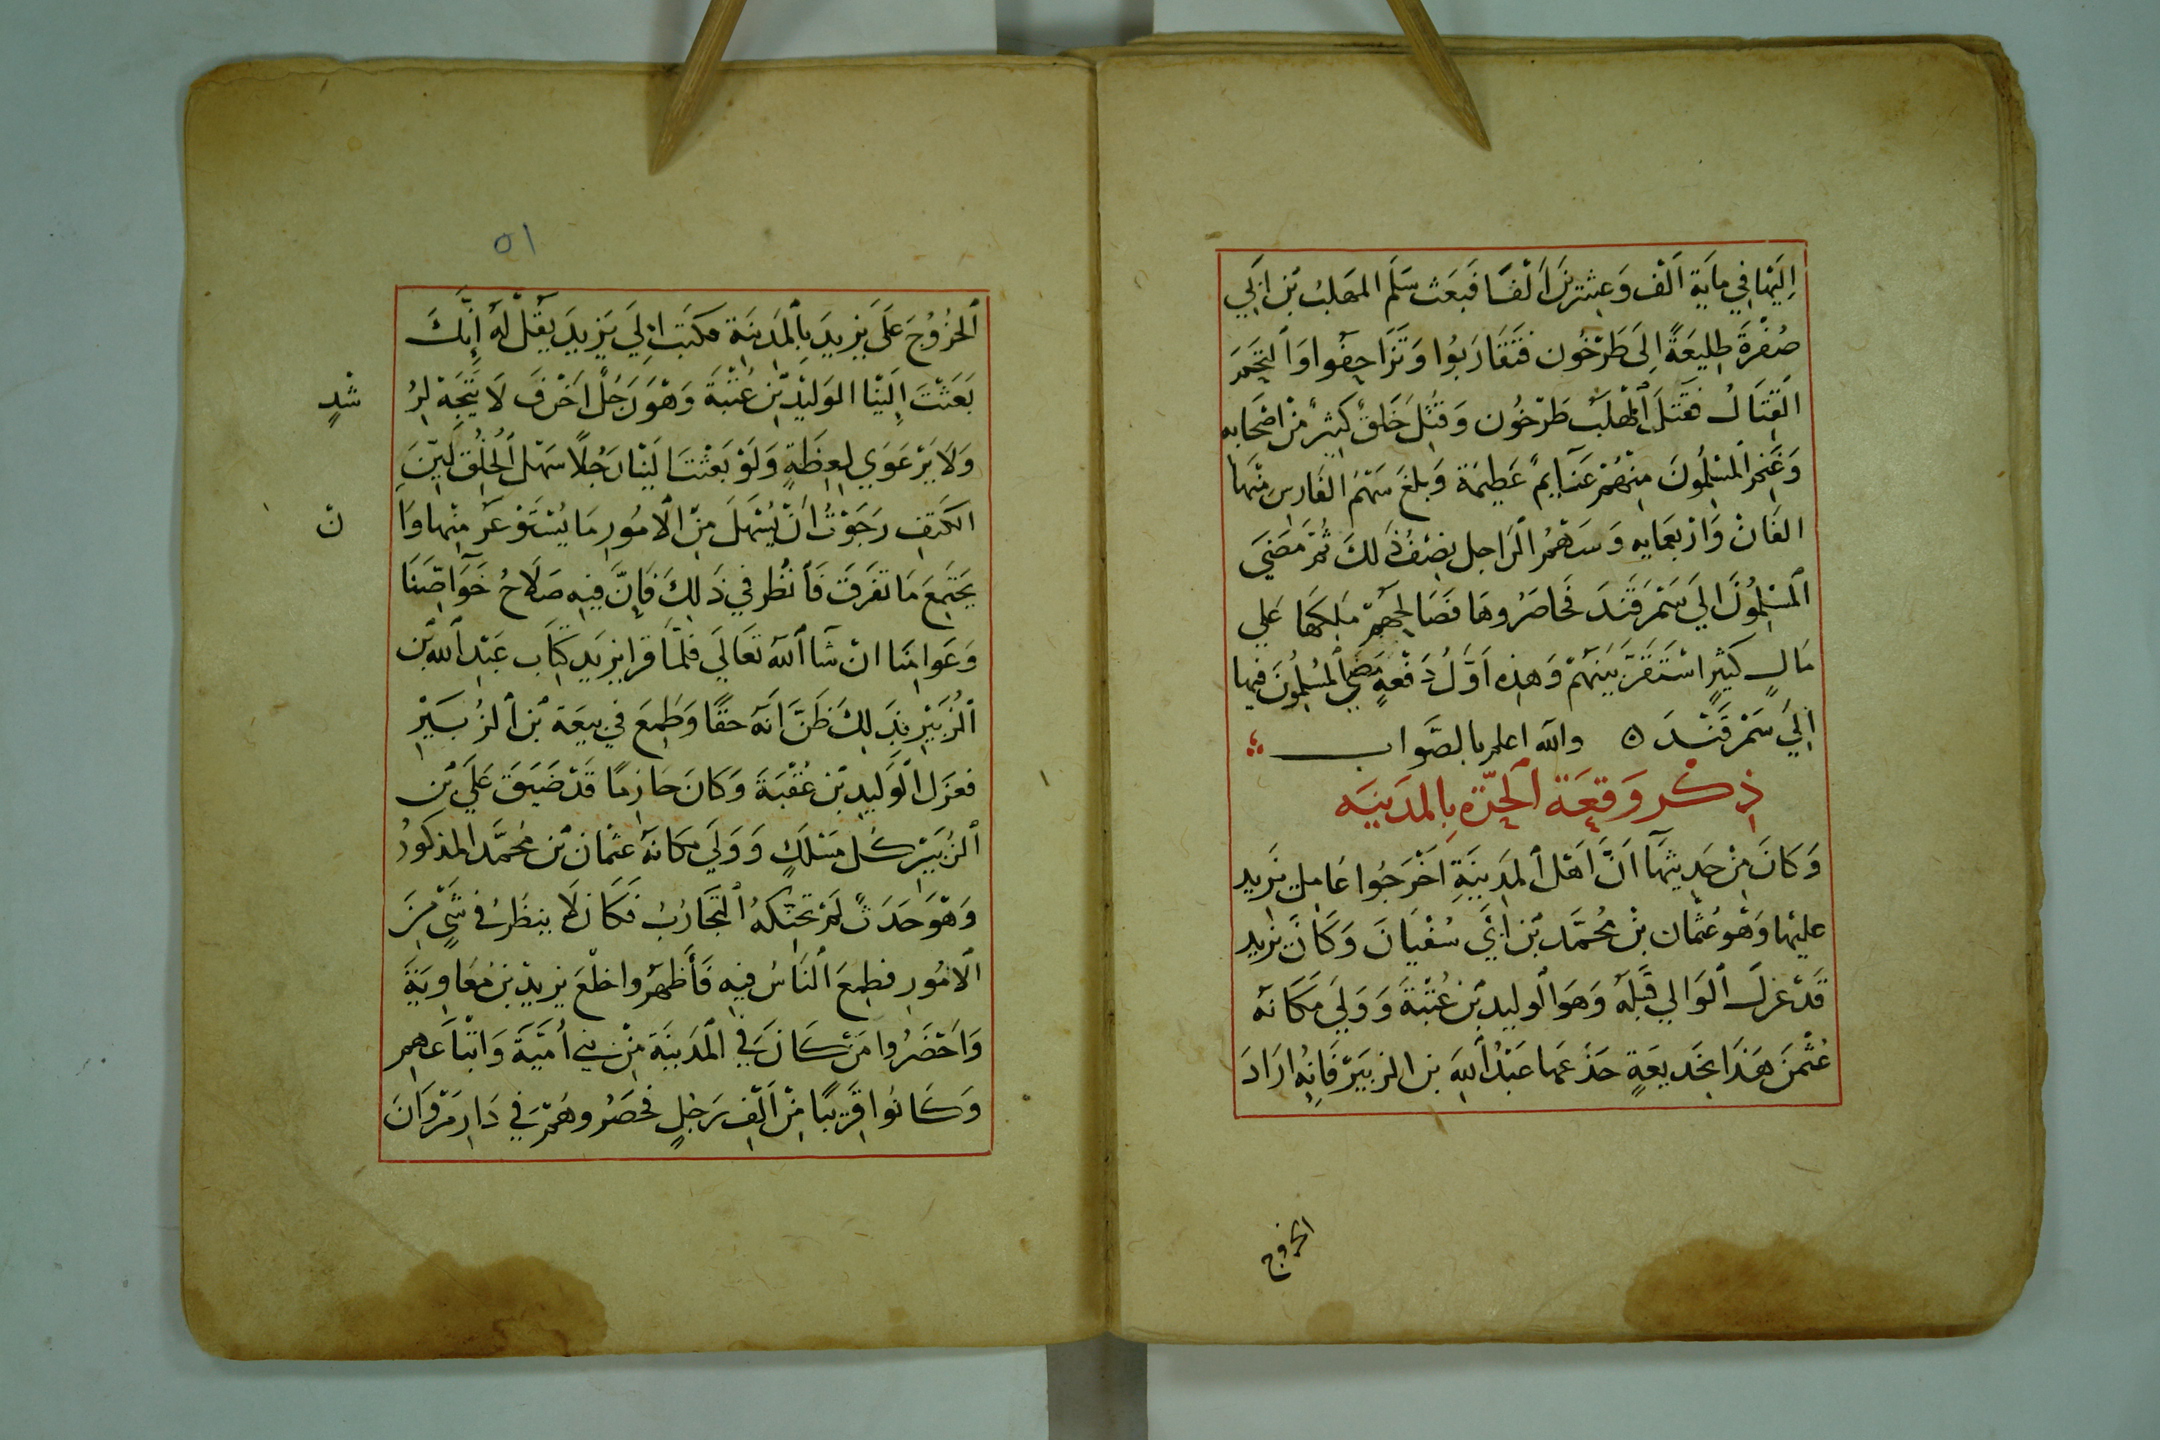 اِلَيْهَا فِي مِايَةِ اَلْف وَعِشْرِيْنَ اَلْفًا فَبَعَثَ سَلْم المهَلبُ بْن اَبِي
صُفْرَةَ طَلِيعَةً اِلَى طَرْخُون فَتَقَارَبُوا وَتَزَاحِفُوا وَالتَحَمَ
الْقِتَالُ فقَتَلَ المهْلَبُ طَرْخُون وَقُتِلَ خَلقٌ كَثِيْر مِنْ اصْحَابه
وَغَنِمَ الْمُسْلِمُونَ مِنْهُمْ غَنَايِم عَظِيمَة وَبلغَ سَهْمُ الْفَارِسِ مِنْهَا
الفَانْ وَارْبَعمايه وَسَهْمُ الرَاجِل نِصْفُ ذَلكَ ثُمَّ مَضَي
الْمُسْلِمُونَ الي سَمْرقَنْدَ فَحاصَرُوهَا فصَالحهمْ مَلِكُهَا عَلي
مَالٍ كَثِيْرٍ اسْتَقَرَّ بَيْنَهُمْ وَهذِه اَوَّلُ دَفْعَةٍ مَضَي الْمُسْلِمُونَ فِيهَا
اِلَي سَمْرقَنْدَ ه والله اعلم بالصَّواب
ذِكْر وَقعَة الْحَرّة بِالمَدِينَه
وَكَانَ مِنْ حَدِيثهَا اَنَّ اَهْلَ الْمَدِينَةِ اَخْرَجُوا عَامِل يَزِيد
عليْهَا وَهْوَ عُثْمَان بْن مُحَمَّد بْن اَبي سُفْيَانَ وَكَانَ يزيد
قَدْ عزلَ الْوَالي قَبلَهُ وَهوَ الْوليد بْن عُتْبَة وَوَلي مَكَانهُ
عُثْمنَ هَذَا بخَدِيعَةٍ خَدَعهَا عَبْدُ الله بن الزبَيْر فَانِهُ ارَادَ
الخروج
٥١
الْخرُوُجَ عَلَي يَزِيدَ بِالْمَدِينَة فكَتَبَ اِلَي يَزِيدَ يقُل لهُ اِنَّكَ
بَعَثْتَ اِلَيْنَا الوَليْد بْن عُتْبَةَ وَهْوَ رَجُلٌ اَخْرَق لَا يَتَّجِهْ لِرُ
شْدٍ
وَلَا يَرْعَوَي لِعِظَةٍ وَلَوْ بَعَثْتَ اليْنَا رَجُلًا سَهْل الْخُلقِ لَيِّنَ
الكَتِفِ رَجَوْتُ اَنْ يُسْهَلَ مِنَ الْامُور مَا يُسْتَوْعَر مِنْهَا وَاَ
نْ
يَجْتَمِعَ مَا تَفَرقَ فَانْظُر فِي ذَلِكَ فَاِنَّ فِيهِ صَلَاحُ خَوَاصِّنَا
وَعَوامنَا انْ شَا اللهُ تَعَالَي فَلَمَّا قرا يزيد كتَاب عَبْد اللهِ بْن
الْزُبَيْر بذَلِكَ ظَنَّ اَنَهُ حَقًا وَطَمِعَ في بيعَة بْن الزُبَيْرِ
فعَزَلَ الْوَلِيد بْن عُقْبَةَ وَكَانَ حَازِمًا قَدْ ضَيَّقَ عَلَي بْن
الزُبَيْر كُل مَسْلَكٍ وَوَلَي مَكَانهُ عثْمَان بْن مُحَمَّد المذكورُ
وَهْوَ حَدَثٌ لَمْ تحَنِّكهُ التَّجَارُبُ فَكَان لَا ينظُرُ في شَيٍ مِنَ
الْامُورِ فطمِعَ النَاسُ فِيهِ فَأَظْهَرُوا خلْعَ يزيدْ بْن مُعَاوِيَةَ
وَاَحْضَرُوا مَنْ كَانَ فِي الْمَدِينَة مِنْ بَني اُمَيَّةَ وَاتْبَاعهمِ
وَكَانُوا قَرِيْبًا مِنْ اَلْفِ رَجُلٍ فحَصَرُوهُمْ فِي دَار مَرْوَانَ